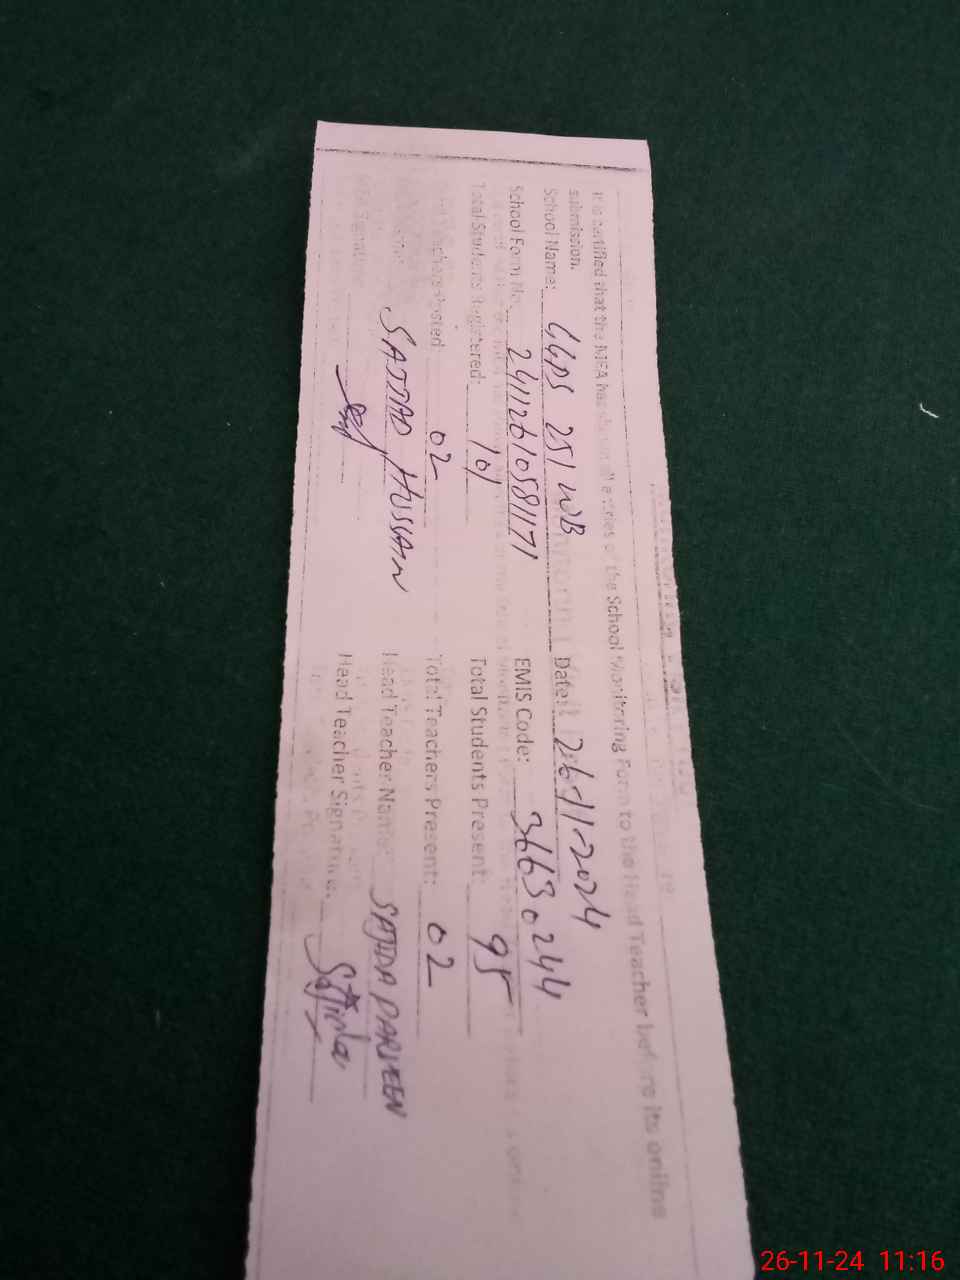 It is certified that the MEA has shown all entries of the School Monitoring Form to the Head Teacher before its online
submission.
School Name: GGPS 251 WB Date: 26-11-2024
School Form No. 241126105811171 EMIS Code: 36630244
Total Students Registered: 101 Total Students Present: 95
Teachers Posted 02 Total Teachers Present: 02
SAJJAD HUSSAIN Head Teacher Name: SAJIDA PARVEEN
Head Teacher Signature: Sajida
26-11-24 11:16